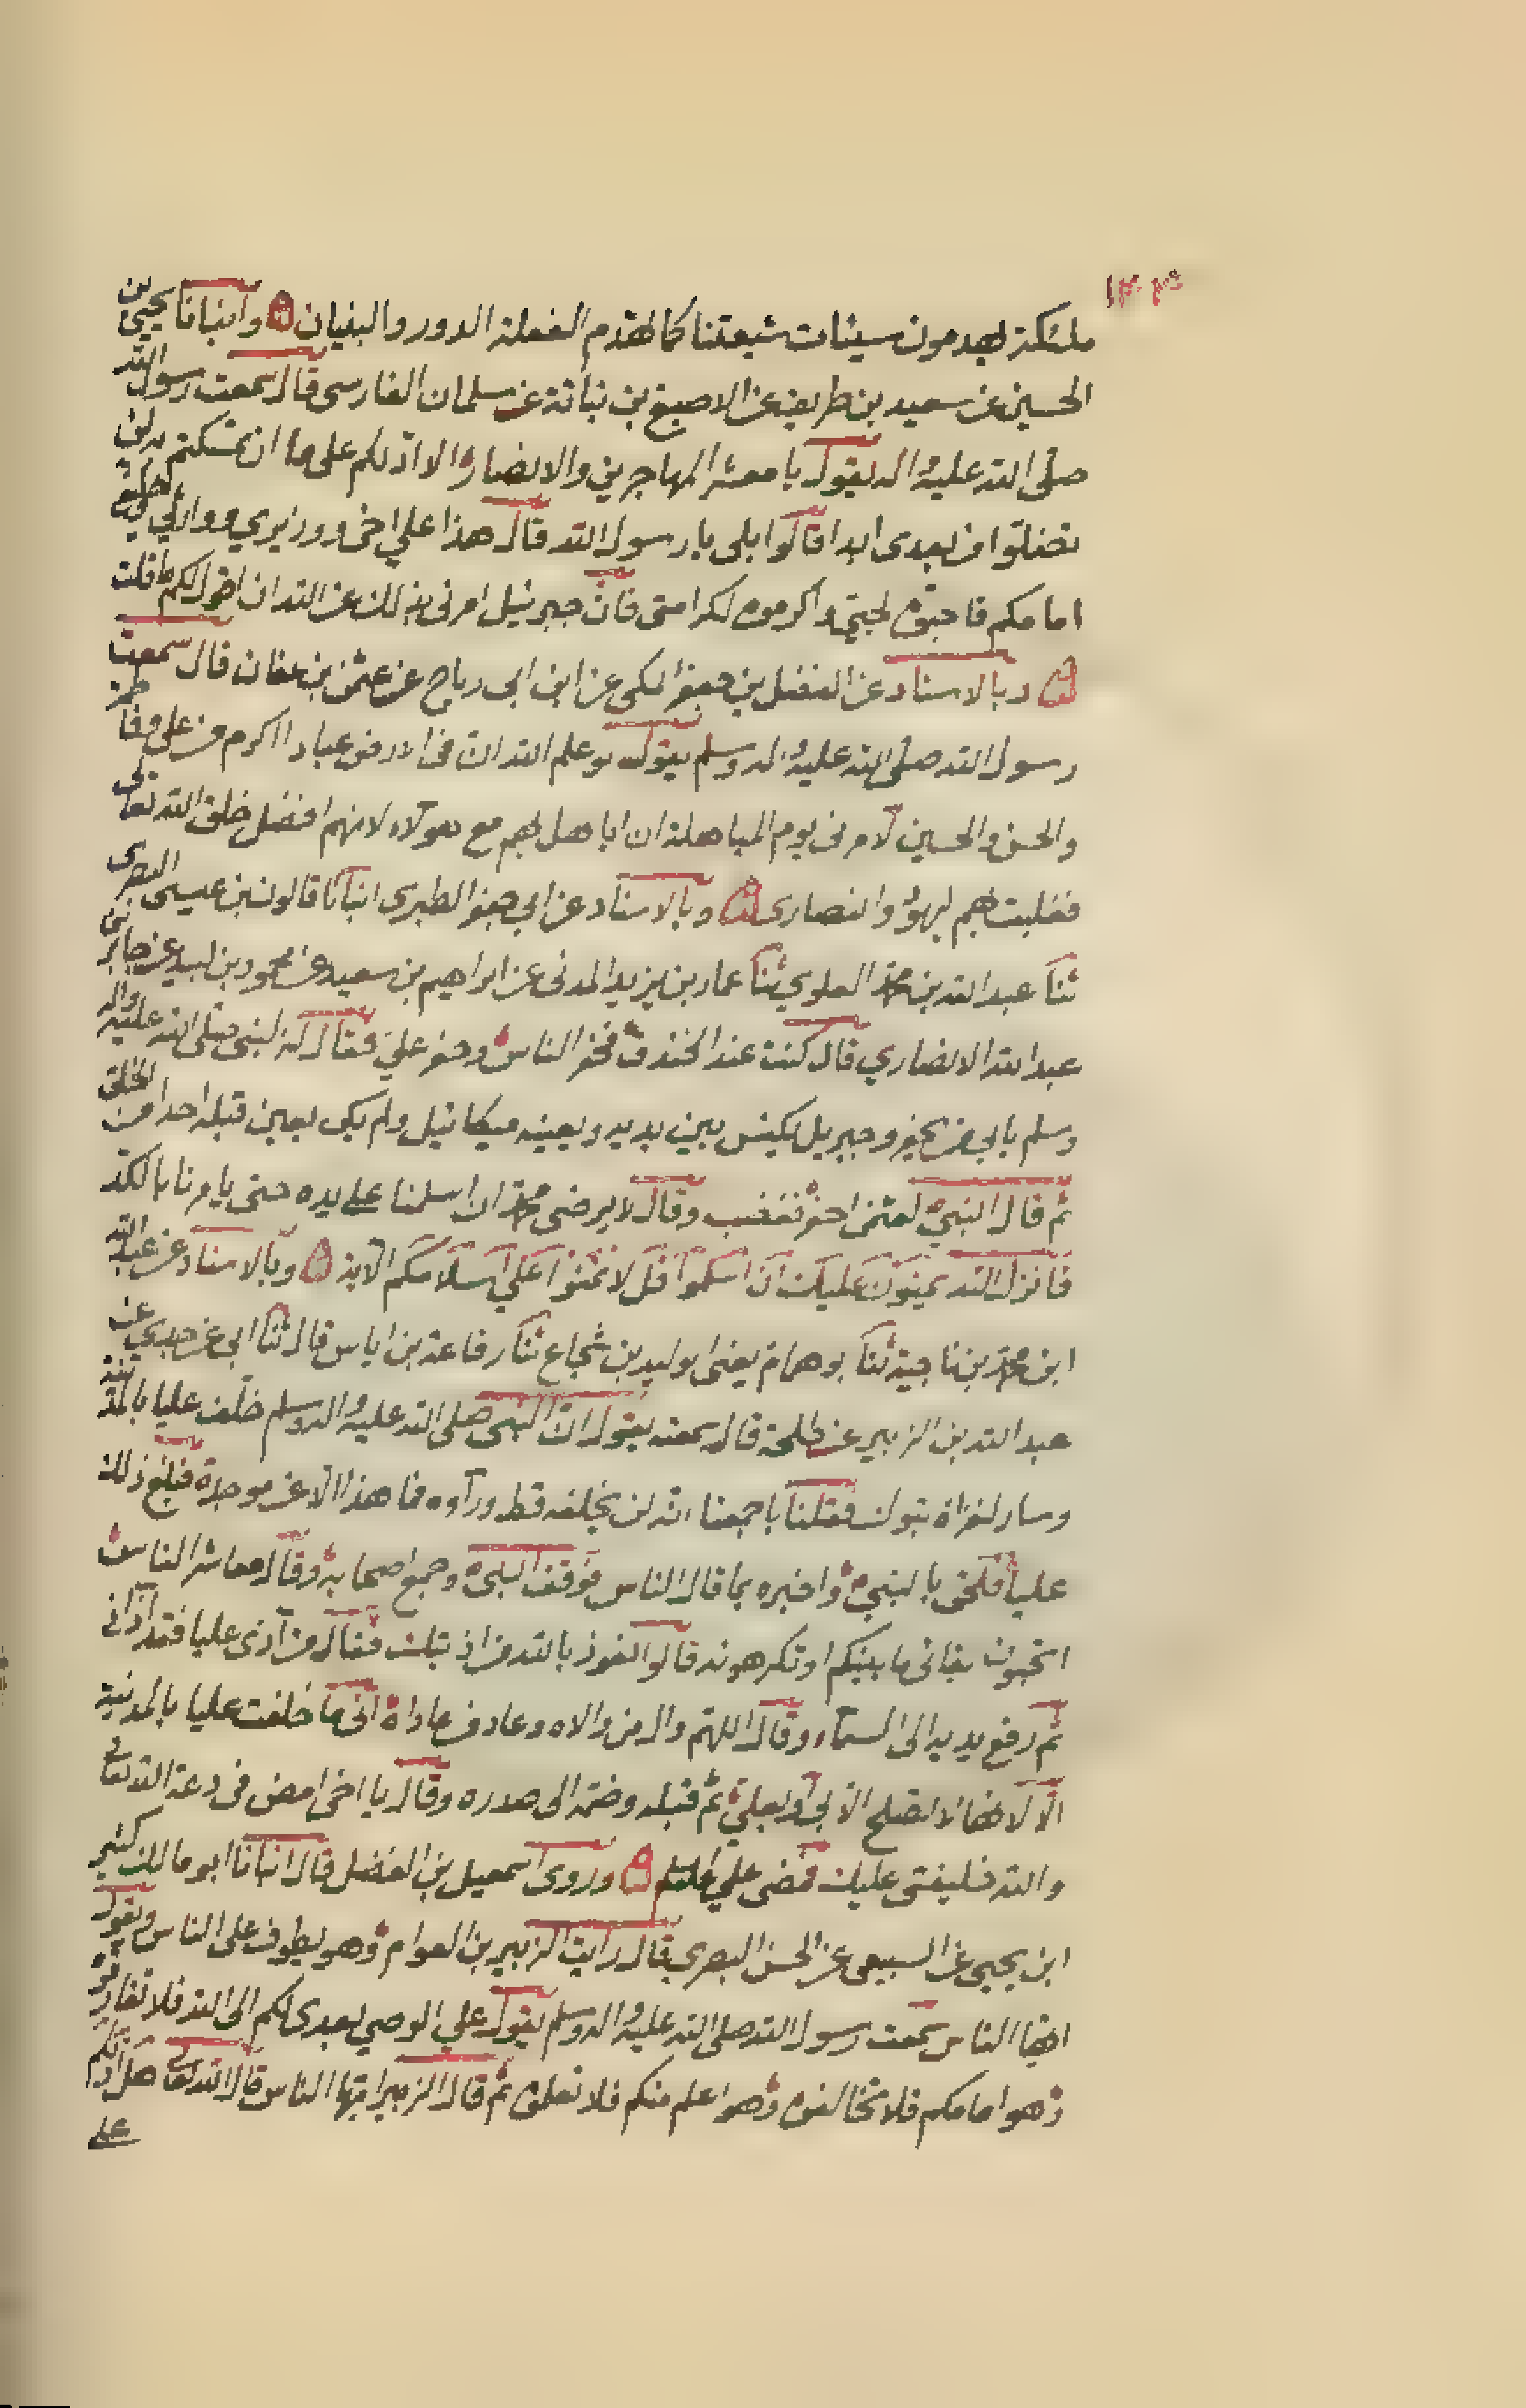 ملئكة يهدمون سيئات شيعتنا كما تهدم الفعلة الدور والبنيان وانبانا يحيى بن
الحسين عن سعيد بن طريف عن الاصبغ بن نباتة عن سلمان الفارسى قال سمعت رسول الله
صلى الله عليه واله يقول يا معشر المهاجرين والانصار الا ادلكم على ما ان تمسكتم به لن
تضلوا من بعدى ابدا قالوا بلى يا رسول الله قال هذا علي اخى ووزيري ووارثي
امامكم فاحبوه لحبي واكرموه لكرامتى فان جبرئيل امرنى بذلك عن الله ان اقول لكم ما قلت
وبالاسناد عن الفضل بن جعفر المكى عن ابن ابى رباح عن عثمن بن عفان قال سمعت
رسول الله صلى الله عليه واله وسلم يقول لو علم الله ان فى الارض عبادا اكرم من على وفاطمة
والحسن والحسين لامرنى يوم المباهلة ان اباهل بهم مع هولاء لانهم افضل خلق الله تعالى
فغلبت بهم ليهود والنصارى وبالاسناد عن ابى جعفر الطبرى انبانا قالون بن عيسى البصرى
ثنا عبد الله بن محمد العلوي ثنا عماد بن يزيد المدنى عن ابراهيم بن سعيد عن محمود بن لبيد عن جابر بن
عبد الله الانصاري قال كنت عند الخندق فحفر الناس وحفر علي فقال له النبى صلى الله عليه واله
وسلم بابى من يحفر وجبريل يكنس بين يديه ويعينه ميكائيل ولم يكن يعين قبله احدا من الخلق
ثم قال النبي لعثمن احفر فغضب وقال لا يرضى محمد ان اسلمنا على يده حتى يامرنا بالكد
فانزل الله يمنون عليك ان اسلموا قل لا تمنوا علي اسلامكم الاية وبالاسناد عن عبد الله
ابن محمد بن ناجية ثنا بو همام يعنى ابو ليد بن شجاع ثنا رفاعة بن اياس قال ثنا ابى عن جدي عن
عبد الله بن الزبير عن طلحة قال سمعته يقول ان النبى صلى الله عليه واله وسلم خلف عليا بالمدينة
وسار لغزاة تبوك فقلنا باجمعنا انه لن يخلفه قط وراءه فما هذا الا عن موجدة فبلغ ذلك
عليا فلحق بالنبي واخبره بما قال الناس فوقف النبى وجمع اصحابه وقال معاشر الناس
اتحبون بقائى ما بينكم او تكرهونه قالوا نعوذ بالله من اذيتك فقال من آذى عليا فقد آذانى
ثم رفع يديه الى السماء وقال اللهم وال من والاه وعاد من عاداه انى ما خلفت عليا بالمدينة
الا لانها لا تصلح الا بى او بعلي ثم قبله وضمه الى صدره وقال يا اخى امض فى دعة الله تعالى
والله خليفتى عليك فمضى علي وروى اسمعيل بن الفضل قال انبانا ابو مالك كثير
ابن يحيى عن السبيعى عن الحسن البصرى قال رايت الزبير بن العوام وهو يطوف على الناس ويقول
ايها الناس سمعت رسول الله صلى الله عليه واله وسلم يقول علي الوصي بعدى لكم الى الله فلا تفارقوه
وهو امامكم فلا تخالفوه وهو اعلم منكم فلا تعلموه ثم قال الزبير ايها الناس قال الله تعالى هل ادلكم
على